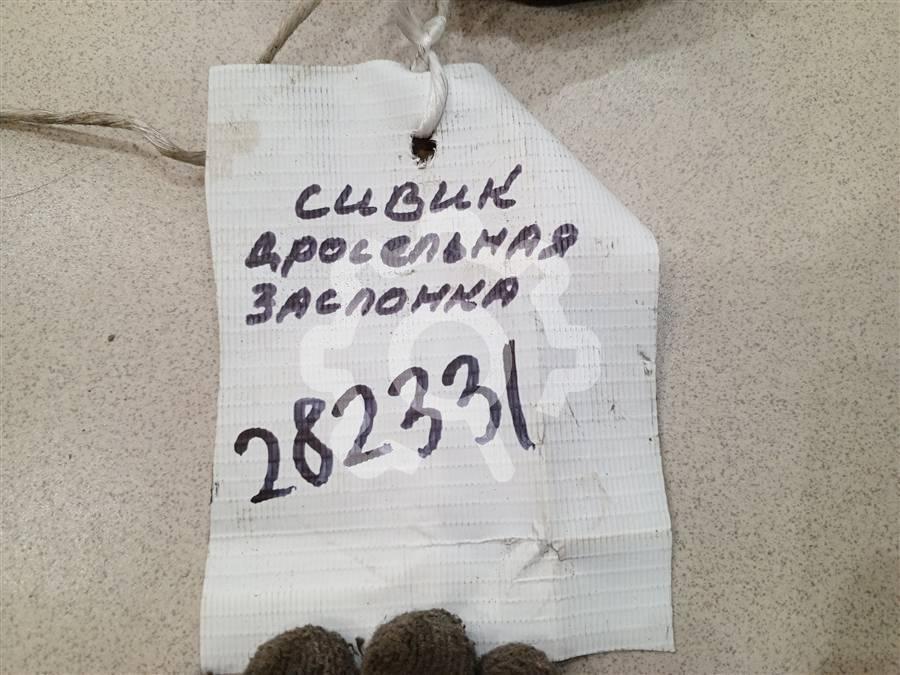 СИВИК
ДРОСЕЛЬНАЯ
ЗАСЛОНКА
282331